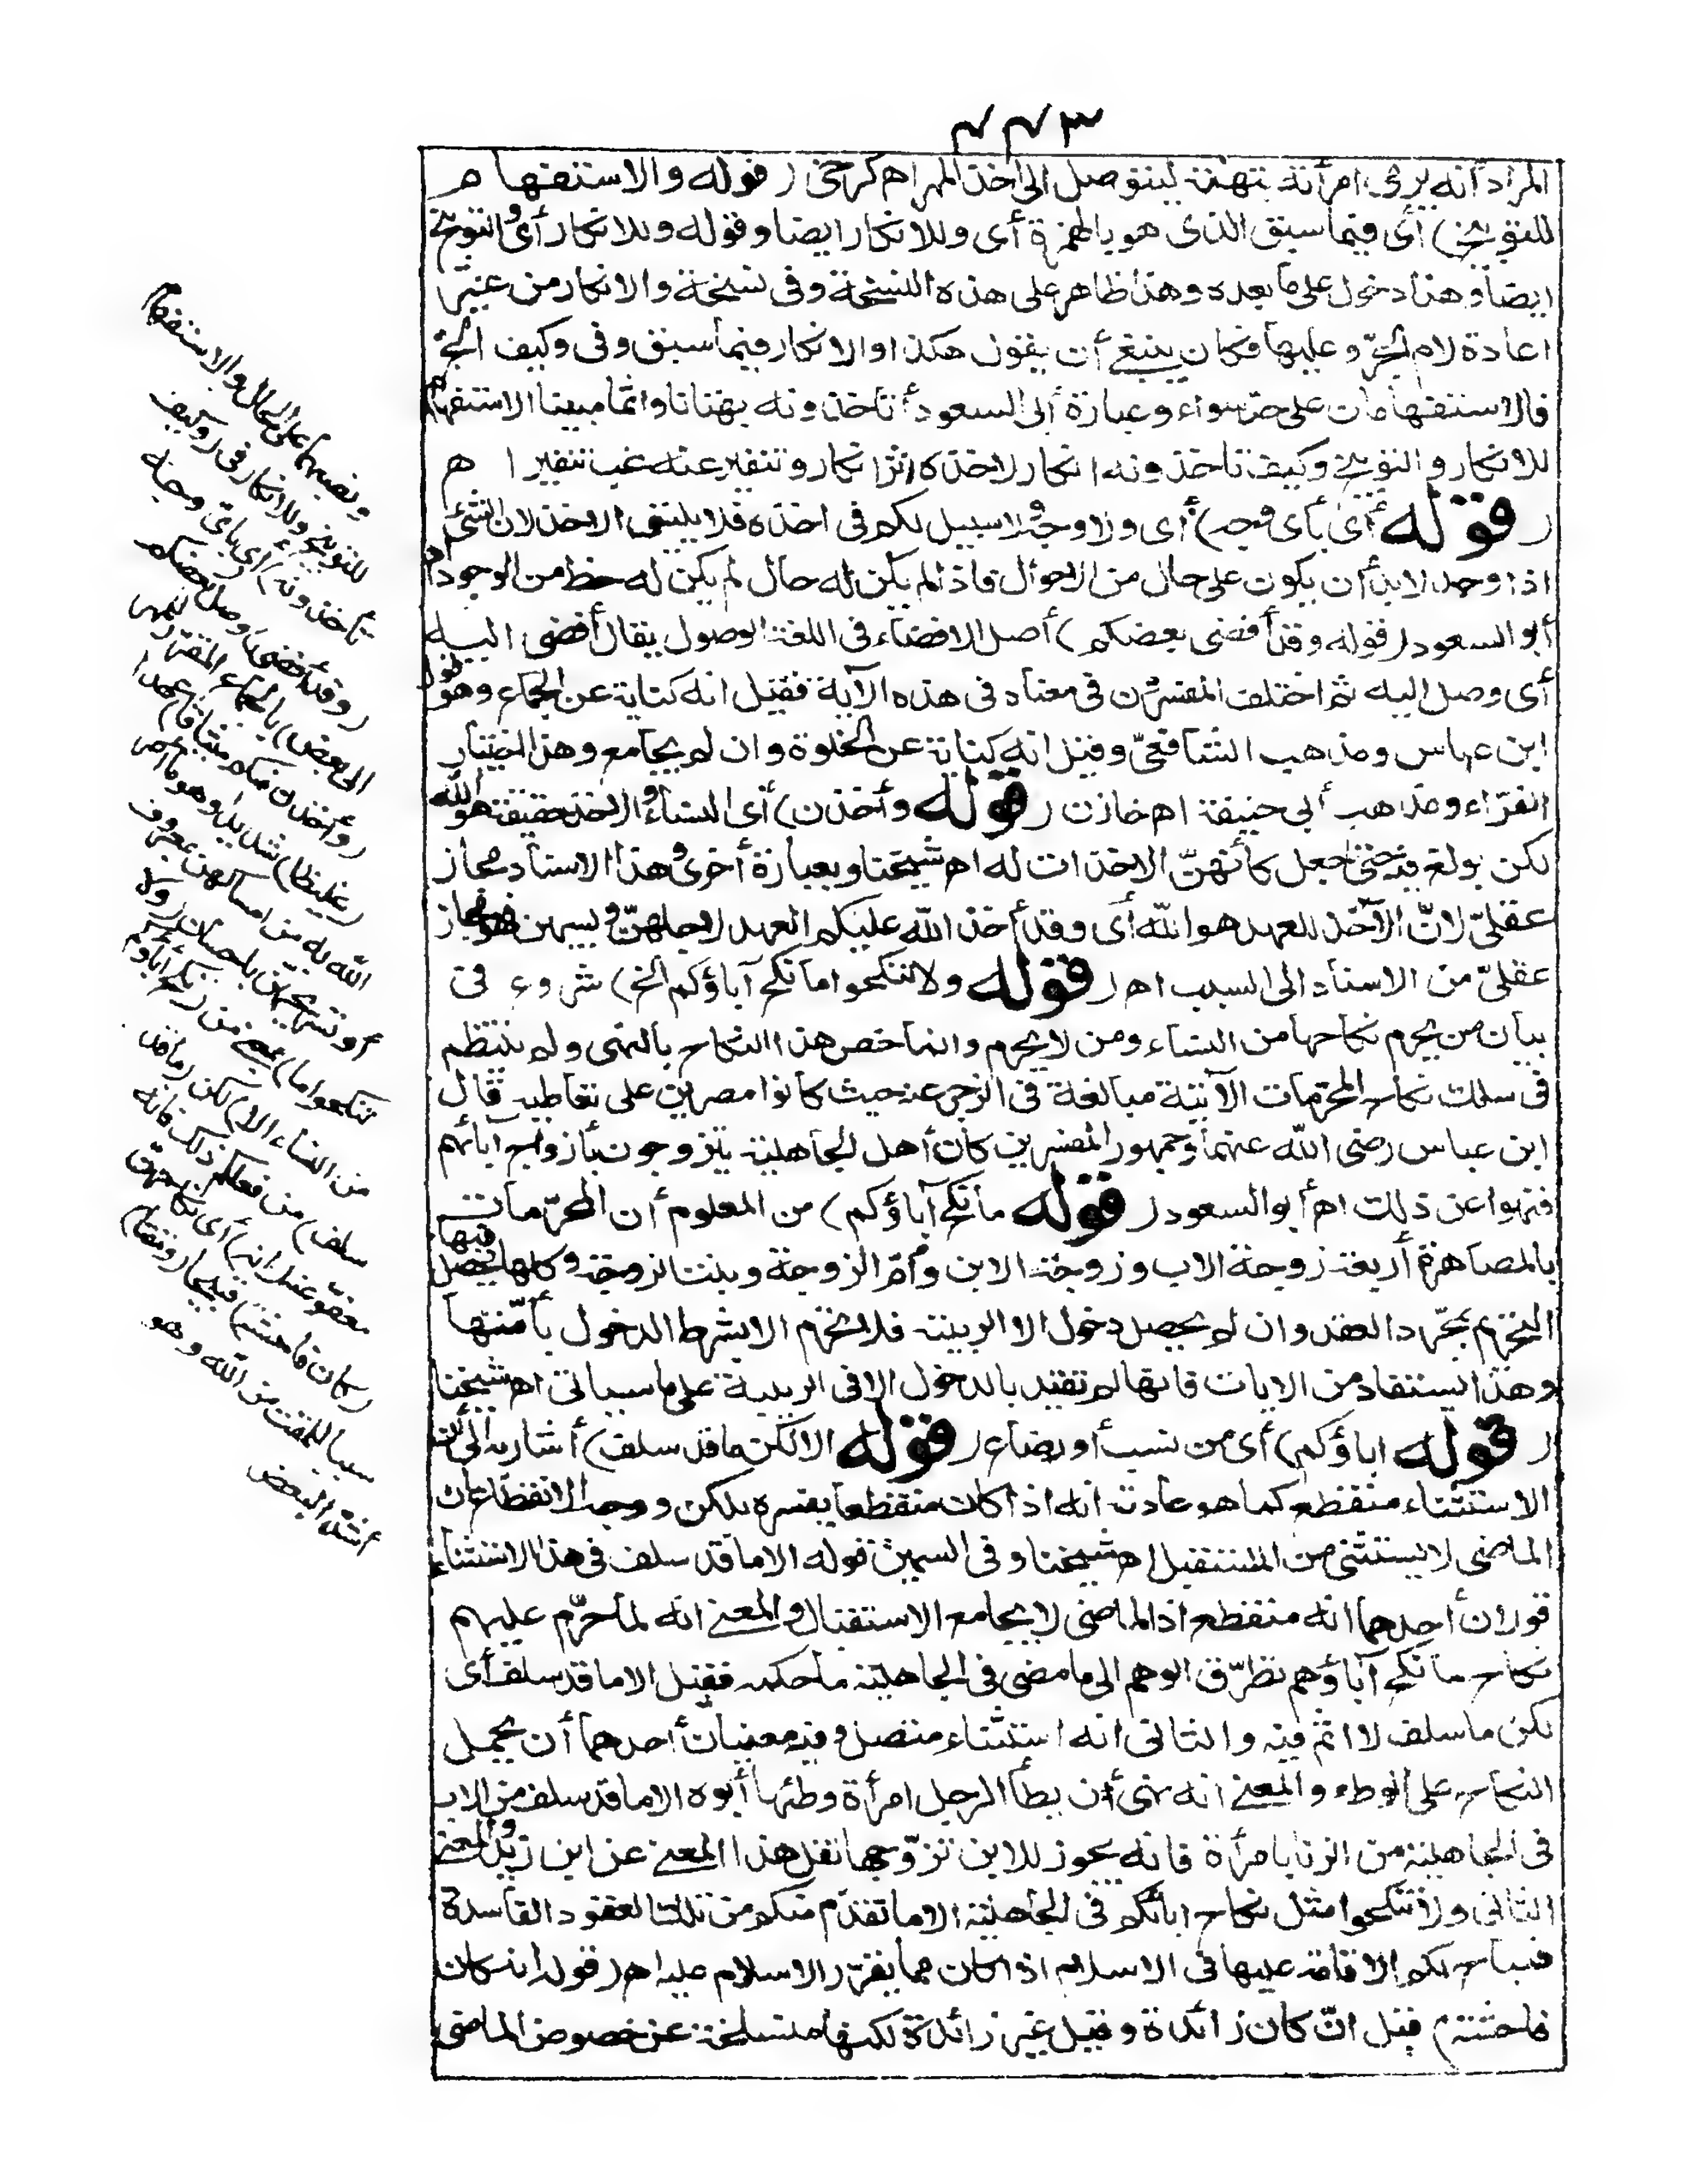 المراد أنه يرمى امرأته بتهمة ليتوصل الى أخذ المهر اه كرخى ( قوله والاستفهام
للتوبيخ ) أى فيما سبق الذى هو بالهمزة أى وللانكار ايضا وقوله وللانكار أى والتوبيخ
ايضا وهذا دخول على ما بعده وهذا ظاهر على هذه النسخة وفى نسخة والانكار من غير
اعادة لام الجرّ وعليها فكان ينبغى أن يقول هكذا والانكار فيما سبق وفى وكيف الخ
فالاستفهامات على حدّ سواء وعبارة أبى السعود أتأخذونه بهتانا واثما مبينا الاستفهام
للانكار والتوبيخ وكيف تاخذونه انكار لاخذه اثر انكار وتنفير عنه غب تنفير اه
( قوله أى بأى وجه ) أى ولا وجه ولا سبيل لكم فى اخذه فلا يليق الاخذ لان الشئ
اذا وجد لا بدّ أن يكون على حال من الاحوال فاذا لم يكن له حال لم يكن له حظ من الوجود اه
أبو السعود ( قوله وقد أفضى بعضكم ) أصل الافضاء فى اللغة الوصول يقال أفضى اليه
أى وصل اليه ثم اختلف المفسرون فى معناه فى هذه الآية فقيل انه كناية عن الجماع وهو قول
ابن عباس ومذهب الشافعىّ وقيل انه كناية عن الخلوة وان لم يجامع وهذا اختيار
الفرّاء ومذهب أبى حنيفة اه خازن ( قوله وأخذن ) أى النساء والآخذ حقيقة هو الله
لكن بولغ فيه حتى جعل كأنهنّ الآخذات له اه شيخنا وبعبارة أخرى وهذا الاسناد مجاز
عقلىّ لانّ الآخذ للعهد هو الله أى وقد أخذ الله عليكم العهد لاجلهنّ وبسببهن فهو مجاز
عقلىّ من الاسناد الى السبب اه ( قوله ولا تنكحوا ما نكح آباؤكم الخ ) شروع فى
بيان من يحرم نكاحها من النساء ومن لا يحرم وانما خص هذا النكاح بالنهى ولم ينتظم
فى سلك نكاح المحرّمات الآتية مبالغة فى الزجر عنه حيث كانوا مصرين على تعاطيه قال
ابن عباس رضى الله عنهما وجمهور المفسرين كان أهل الجاهلية يتزوجون بأزواج آبائهم
فنهوا عن ذلك اه أبو السعود ( قوله ما نكح آباؤكم ) من المعلوم أن المحرّمات
بالمصاهرة أربعة زوجة الاب وزوجة الابن وأمّ الزوجة وبنت الزوجة وكلها يحصل فيها
التحريم بمجّرد العقد وان لم يحصل دخول الا الربيبة فلا تحرم الا بشرط الدخول بأمّها
وهذا يستفاد من الايات فانها لم تقيد بالدخول الا فى الربيبة على ما سيأتى اه شيخنا
( قوله اباؤكم ) أى من نسب أو رضاع ( قوله الا لكن ما قد سلف ) أشار به الى أن
الاستثناء منقطع كما هو عادته انه اذا كان منقطعا يفسره بلكن ووجه الانقطاع ان
الماضى لا يستثنى من المستقبل اه شيخنا وفى السمين قوله الا ما قد سلف فى هذا الاستثناء
قولان أحدهما انه منقطع اذ الماضى لا يجامع الاستقبال والمعنى انه لما حرّم عليهم
نكاح ما نكح آباؤهم تطرّق الوهم الى ما مضى فى الجاهلية ما حكمه فقيل الا ما قد سلف أى
لكن ما سلف لا اثم فيه والثانى انه استثناء متصل وفيه معنيان أحدهما أن يحمل
النكاح على الوطء والمعنى انه نهى أن يطأ الرجل امرأة وطئها أبوه الا ما قد سلف من الاب
فى الجاهلية من الزنا بامرأة فانه يجوز للابن تزوّجها نقل هذا المعنى عن ابن زيد والمعنى
الثانى ولا تنكحوا مثل نكاح ابائكم فى الجاهلية الا ما تقدّم منكم من تلك العقود الفاسدة
فيباح لكم الاقامة عليها فى الاسلام اذا كان مما يقرّر الاسلام عليه اه ( قوله انه كان
فاحشة ) قيل انّ كان زائدة وقيل غير زائدة لكنها منسلخة عن خصوص الماضى
ونصبهما على الحال والاستفهام
للتوبيخ وللانكار فى ( وكيف
تأخذونه ) أى بأى وجه
( وقد أفضى ) وصل ( بعضكم
الى بعض ) بالجماع المقرّر للمهر
( وأخذن منكم ميثاقا ) عهدا
( غليظا ) شديدا وهو ما أمر
الله به من امساكهن بمعروف
أو تسريحهنّ باحسان ( ولا
تنكحوا ما ) بمعنى من ( نكح آباؤكم
من النساء الا ) لكن ( ما قد
سلف ) من فعلكم ذلك فانه
معفوّ عنه ( انه ) أى نكاحهنّ
( كان فاحشة ) قبيحا ( ومقتا )
سببا للمقت من الله وهو
أشدّ البغض